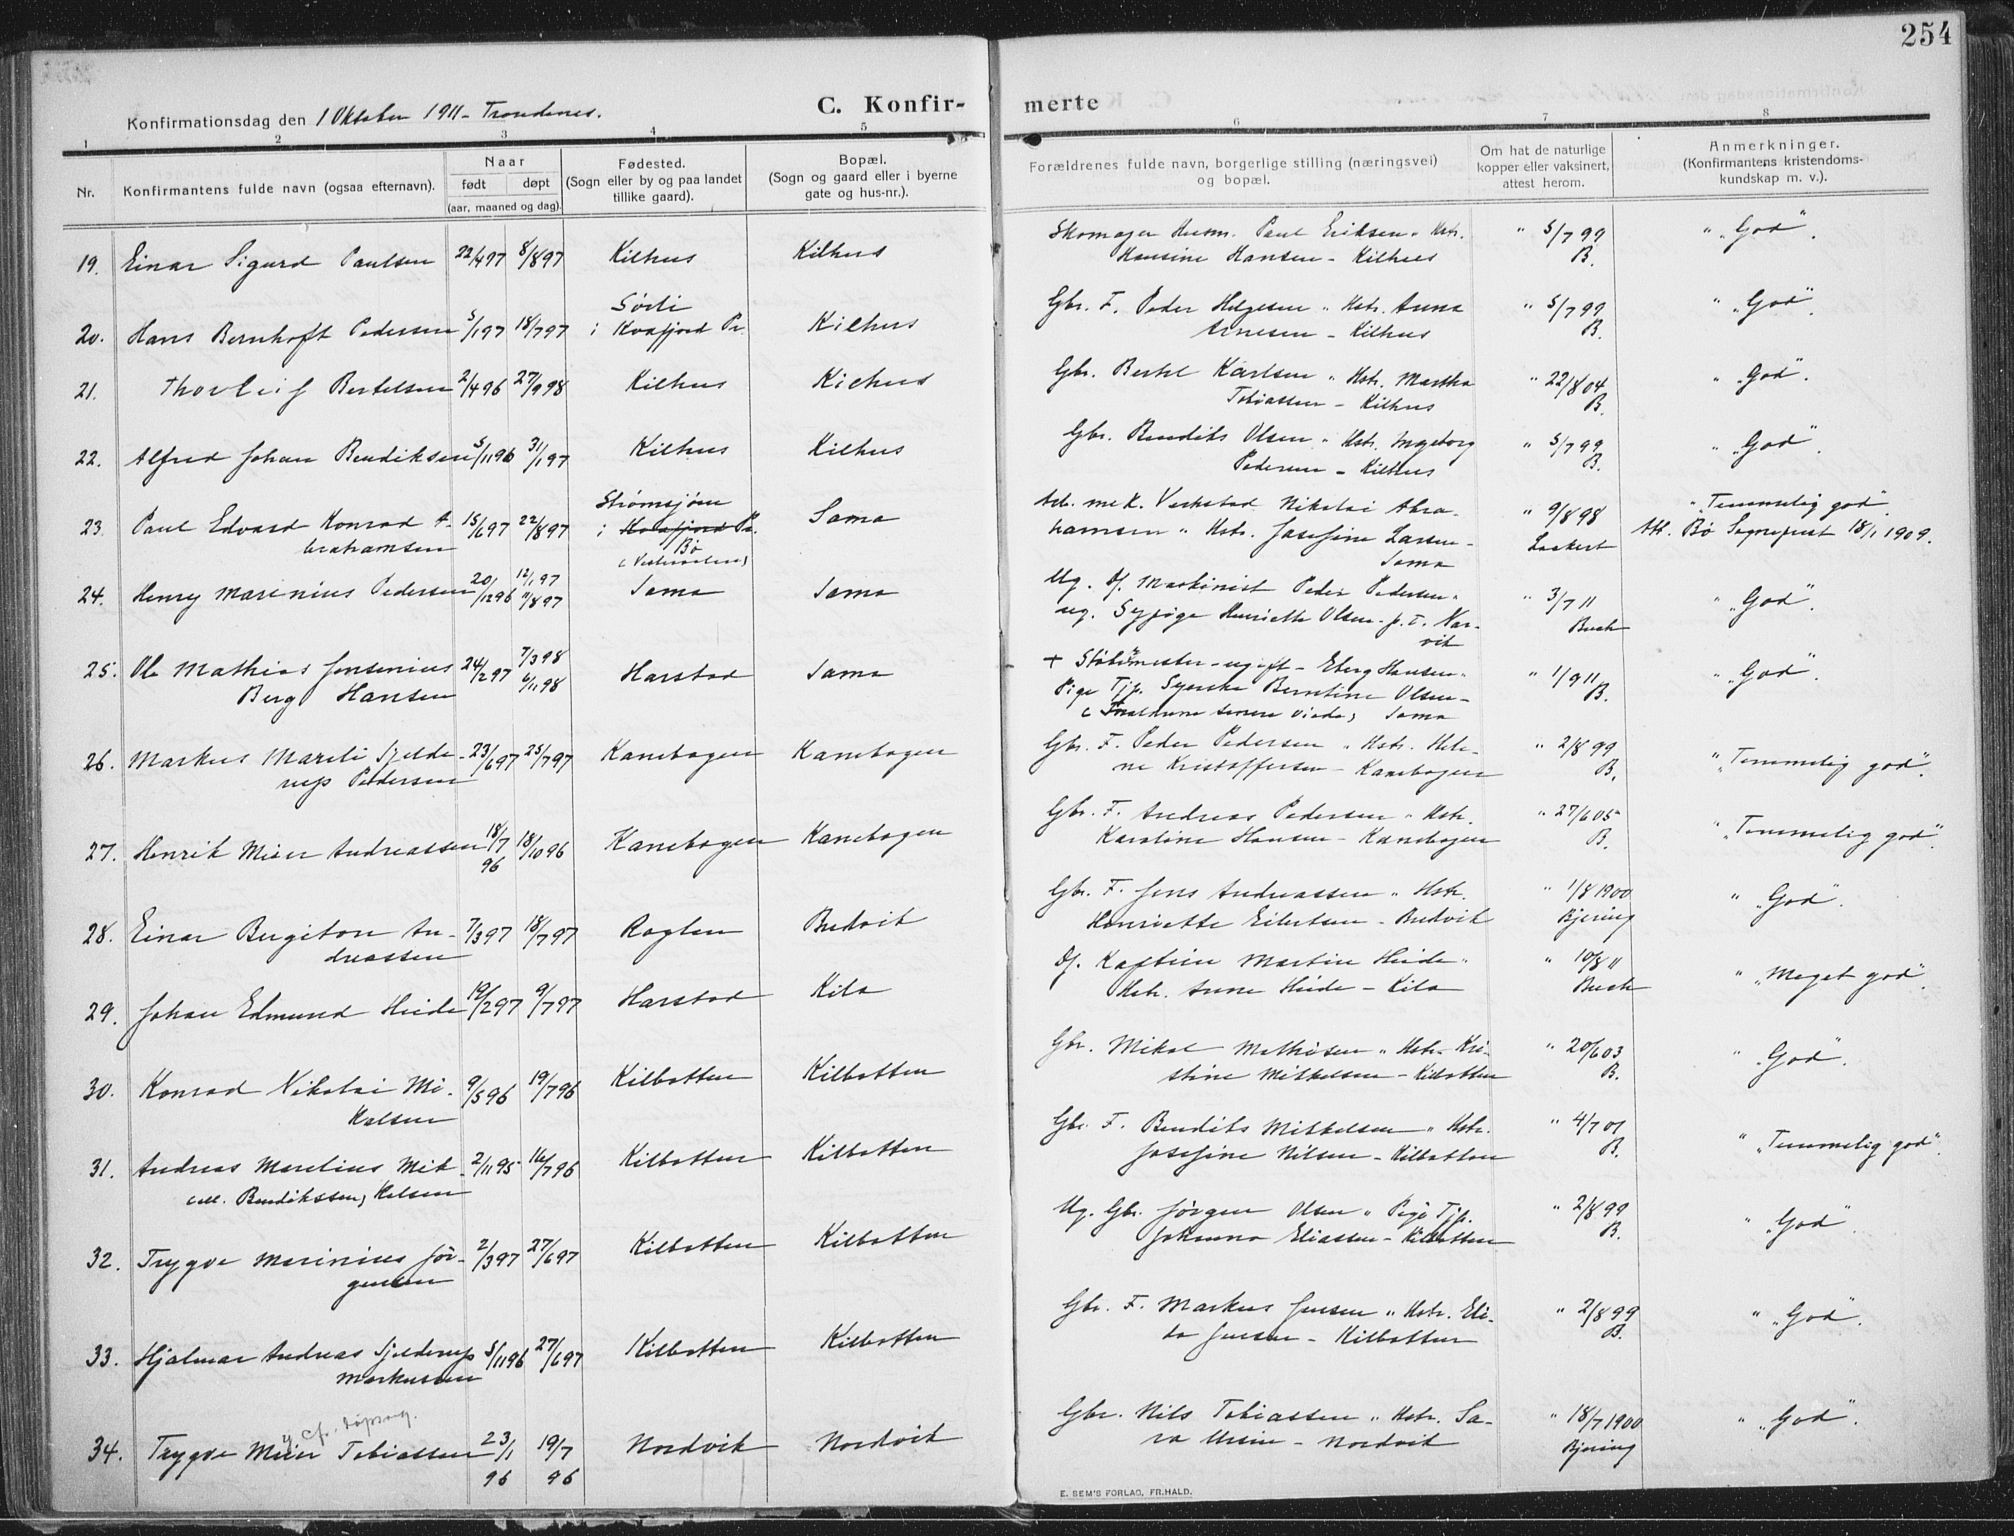 254
Konfirmationsdag den 1 Oktober 1911 - Trondenes.
C. Konfir-
merte
1 2 3 4 5 6 7 8
Nr.
Konfirmantens fulde navn (ogsaa efternavn).
Naar
født døpt
(aar, maaned og dag).
Fødested.
(Sogn eller by og paa landet
tillike gaard).
Bopæl.
(Sogn og gaard eller i byerne
gate og hus-nr.).
Forældrenes fulde navn, borgerlige stilling (næringsvei)
og bopæl.
Om hat de naturlige
kopper eller vaksinert,
attest herom.
Anmerkninger.
(Konfirmantens kristendoms-
kundskap m. v.).
19. Einar Sigurd Paulsen 22/4 97 8/8 97 Kilhus Kilhus
Skomager Husm. Paul Eriksen " Hstr.
Hansine Hansen - Kilhus
" 5/7 99
B.
" "God".
20. Hans Bernhoft Pedersen 5/1 97 18/7 97 Sørli
i Kvæfjord Pr. Kilhus
Gbr. F. Peder Helgesen " Hstr. Anna
Arnesen - Kilhus
" 5/7 99
B.
" "God".
21. Thorleif Bertelsen 2/4 96 27/9 98 Kilhus Kilhus
Gbr. Bertel Karlsen " Hstr. Martha
Tobiassen - Kilhus
" 22/8 04
B.
" "God".
22. Alfred Johan Bendiksen 5/11 96 31/1 97 Kilhus Kilhus
Gbr. Bendiks Olsen " Hstr. Ingeborg
Pedersen - Kilhus
" 5/7 99
B.
" "God".
23. Paul Edvard Konrad A-
brahamsen 15/6 97 22/8 97 Strømsjøen
i Kvæfjord Pr.
Bø
(Vesteraalen) Sama
Arb. mek. Verksted Nikolai Abra-
hamsen " Hstr. Josefine Larsen -
Sama
" 9/8 98
Lockert
" "Temmelig god".
Att. Bø Sogneprest 18/1 1909.
24. Henry Marenius Pedersen 20/12 96 12/1 97
11/8 97 Sama Sama
Ug. Df. Maskinist Peder Pedersen "
ug. Sypige Henriette Olsen - p. t. Nar-
vik
" 3/7 11
Buch
" "God".
25. Ole Mathias Jensenius
Berg Hansen 24/2 97 7/3 98
6/11 98 Harstad Sama
+ Støbemester - ugift - Eberg Hansen "
Pige Tjp. Syerske Berntine Olsen -
(Forældrene senere viede) Sama
" 1/9 11
B.
" "God".
26. Markus Mareli Sjelde-
rup Pedersen 23/6 97 25/7 97 Kanebogen Kanebogen
Gbr. F. Peder Pedersen " Hstr. Hele-
ne Kristoffersen - Kanebogen
" 2/8 99
B.
" "Temmelig god".
27. Henrik Meier Andreassen 18/7
96 18/10 96 Kanebogen Kanebogen
Gbr. F. Andreas Pedersen " Hstr.
Karoline Hansen - Kanebogen
" 27/6 05
B.
" "Temmelig god".
28. Einar Bergiton An-
dreassen 7/3 97 18/7 97 Roglen Bredvik
Gbr. F. Jens Andreassen " Hstr.
Henriette Eilertsen - Bredvik
" 1/8 1900
Bjering
" "God".
29. Johan Edmund Heide 19/2 97 9/7 97 Harstad Kila
Df. Kaptein Martin Heide "
Hstr. Anne Heide - Kila
" 10/8 11
Buch
" "Meget god".
30. Konrad Nikolai Mi-
kalsen 9/5 96 19/7 96 Kilbotten Kilbotten
Gbr. Mikal Mathisen " Hstr. Kri-
stine Mikkelsen - Kilbotten
" 20/6 03
B.
" "God".
31. Andreas Marelius Mik-
(ell. Bendikssen) kelsen 2/11 95 16/7 96 Kilbotten Kilbotten
Gbr. F. Bendiks Mikkelsen " Hstr.
Josefine Nilsen - Kilbotten
" 4/7 01
B.
" "Temmelig god".
32. Trygve Marinius Jør-
gensen 2/3 97 27/6 97 Kilbotten Kilbotten
Ug. Gbr. Jørgen Olsen " Pige Tjp.
Johanna Eliassen - Kilbotten
" 2/8 99
B.
" "God".
33. Hjalmar Andreas Sjelderup
Markussen 5/11 96 27/6 97 Kilbotten Kilbotten
Gbr. F. Markus Jensen " Hstr. Eli-
da Jensen - Kilbotten
" 2/8 99
B.
" "God".
y cfr. døpsreg.
34. Trygve Meier Tobiassen 23/1
96 19/7
96 Nordvik Nordvik
Gbr. Nils Tobiassen " Hstr. Sa-
ra Ursin - Nordvik
" 18/7 1900
Bjering
" "God".
E. SEM'S FORLAG, FR.HALD.